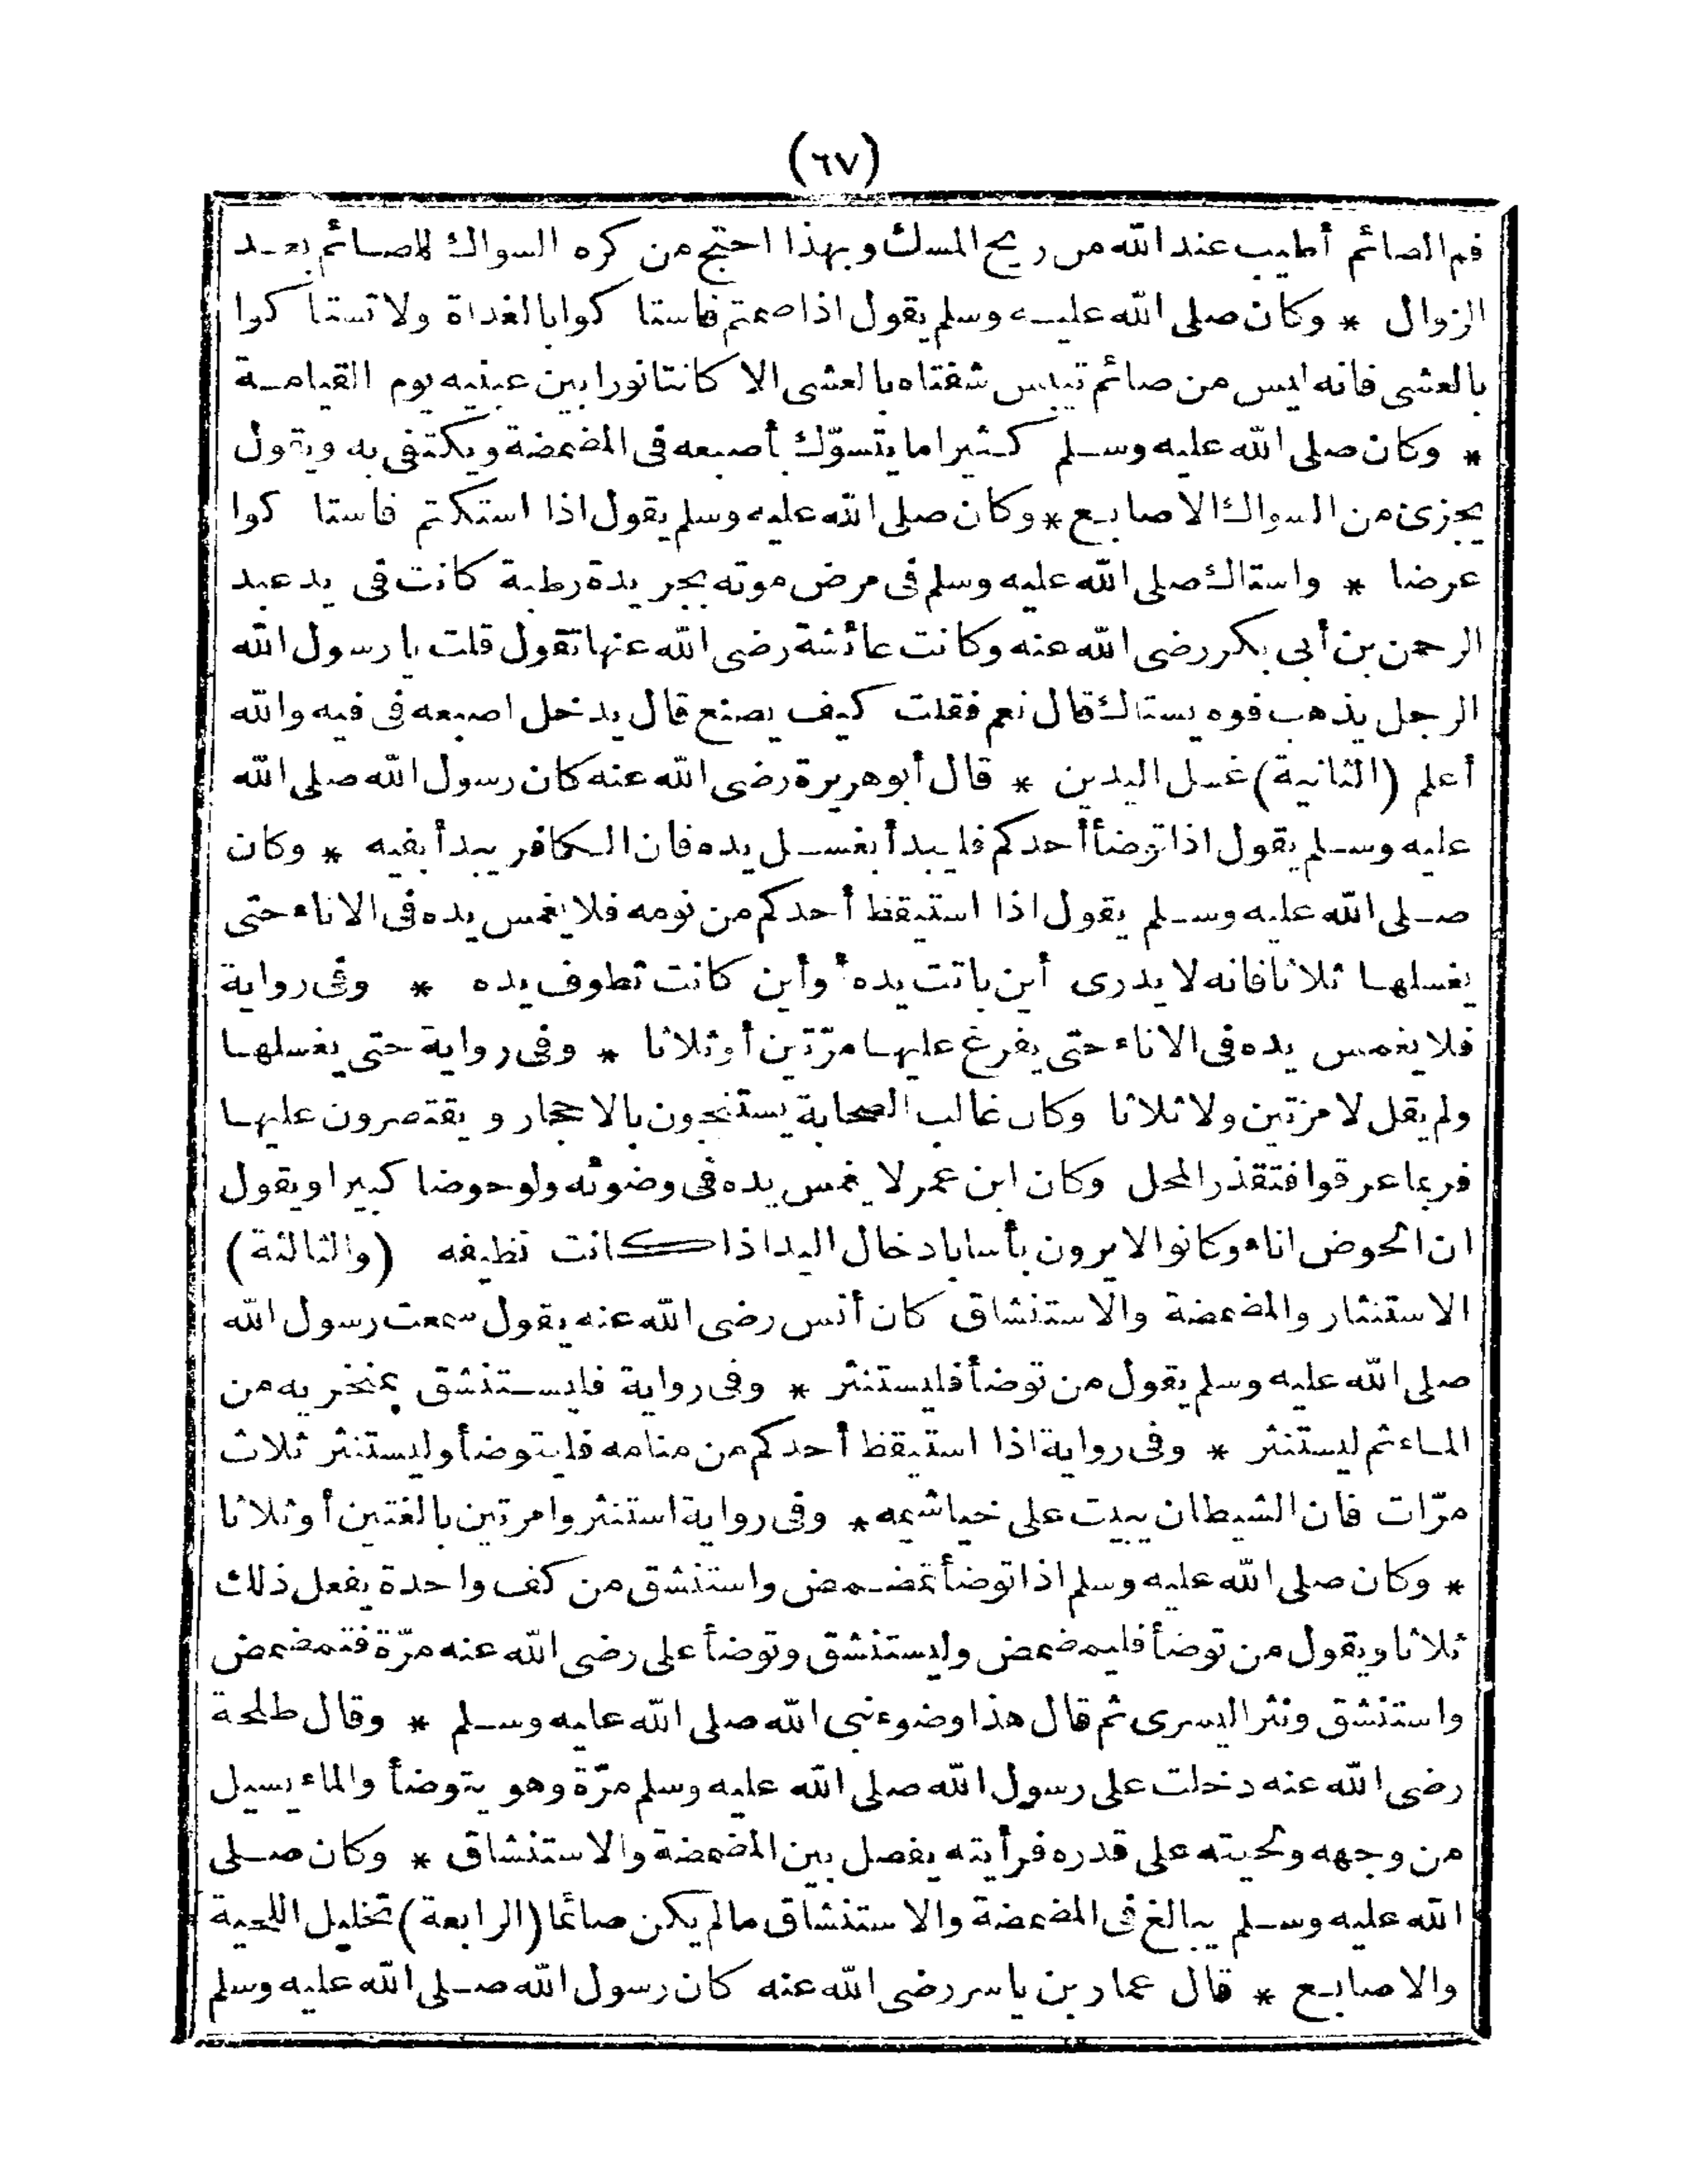 (٦٧)
فم الصائم أطيب عند الله من ريح المسك وبهذا احتج من كره السواك للصائم بعد
الزوال * وكان صلى الله عليه وسلم يقول اذا صمتم فاستاكوا بالغداة ولا تستاكوا
بالعشى فانه ليس من صائم تيبس شفتاه بالعشى الا كانتا نورا بين عينيه يوم القيامة
* وكان صلى الله عليه وسلم كثيرا ما يتسوّك بأصبعه فى المضمضة ويكتفى به ويقول
يجزئ من السواك الاصابع * وكان صلى الله عليه وسلم يقول اذا استكتم فاستاكوا
عرضا * واستاك صلى الله عليه وسلم فى مرض موته بجريدة رطبة كانت فى يد عبد
الرحمن بن أبى بكر رضى الله عنه وكانت عائشة رضى الله عنها تقول قلت يا رسول الله
الرجل يذهب فوه يستاك قال نعم فقلت كيف يصنع قال يدخل اصبعه فى فيه والله
أعلم (الثانية) غسل اليدين * قال أبو هريرة رضى الله عنه كان رسول الله صلى الله
عليه وسلم يقول اذا توضأ أحدكم فليبدأ بغسل يده فان الكافر يبدأ بفيه * وكان
صلى الله عليه وسلم يقول اذا استيقظ أحدكم من نومه فلا يغمس يده فى الاناء حتى
يغسلها ثلاثا فانه لا يدرى أين باتت يده أو أين كانت تطوف يده * وفى رواية
فلا يغمس يده فى الاناء حتى يفرغ عليها مرّتين أو ثلاثا * وفى رواية حتى يغسلها
ولم يقل لا مرّتين ولا ثلاثا وكان غالب الصحابة يستنجون بالاحجار ويقتصرون عليها
فربما عرقوا فتقذر المحل وكان ابن عمر لا يغمس يده فى وضوئه ولو حوضا كبيرا ويقول
ان الحوض اناء وكانوا لا يرون بأسا بادخال اليد اذا كانت نظيفه (والثالثة)
الاستنثار والمضمضة والاستنشاق كان أنس رضى الله عنه يقول سمعت رسول الله
صلى الله عليه وسلم يقول من توضأ فليستنثر * وفى رواية فليستنشق بمنخريه من
الماء ثم ليستنثر * وفى رواية اذا استيقظ أحدكم من منامه فليتوضأ وليستنثر ثلاث
مرّات فان الشيطان يبيت على خياشيمه * وفى رواية استنثروا مرتين بالغتين أو ثلاثا
* وكان صلى الله عليه وسلم اذا توضأ تمضمض واستنشق من كف واحدة يفعل ذلك
ثلاثا ويقول من توضأ فليمضمض وليستنشق وتوضأ على رضى الله عنه مرّة فتمضمض
واستنشق ونثر اليسرى ثم قال هذا وضوء نبى الله صلى الله عليه وسلم * وقال طلحة
رضى الله عنه دخلت على رسول الله صلى الله عليه وسلم مرّة وهو يتوضأ والماء يسيل
من وجهه ولحيته على قدره فرأيته يفصل بين المضمضة والاستنشاق * وكان صلى
الله عليه وسلم يبالغ فى المضمضة والاستنشاق ما لم يكن صائما (الرابعة) تخليل اللحية
والاصابع * قال عمار بن ياسر رضى الله عنه كان رسول الله صلى الله عليه وسلم